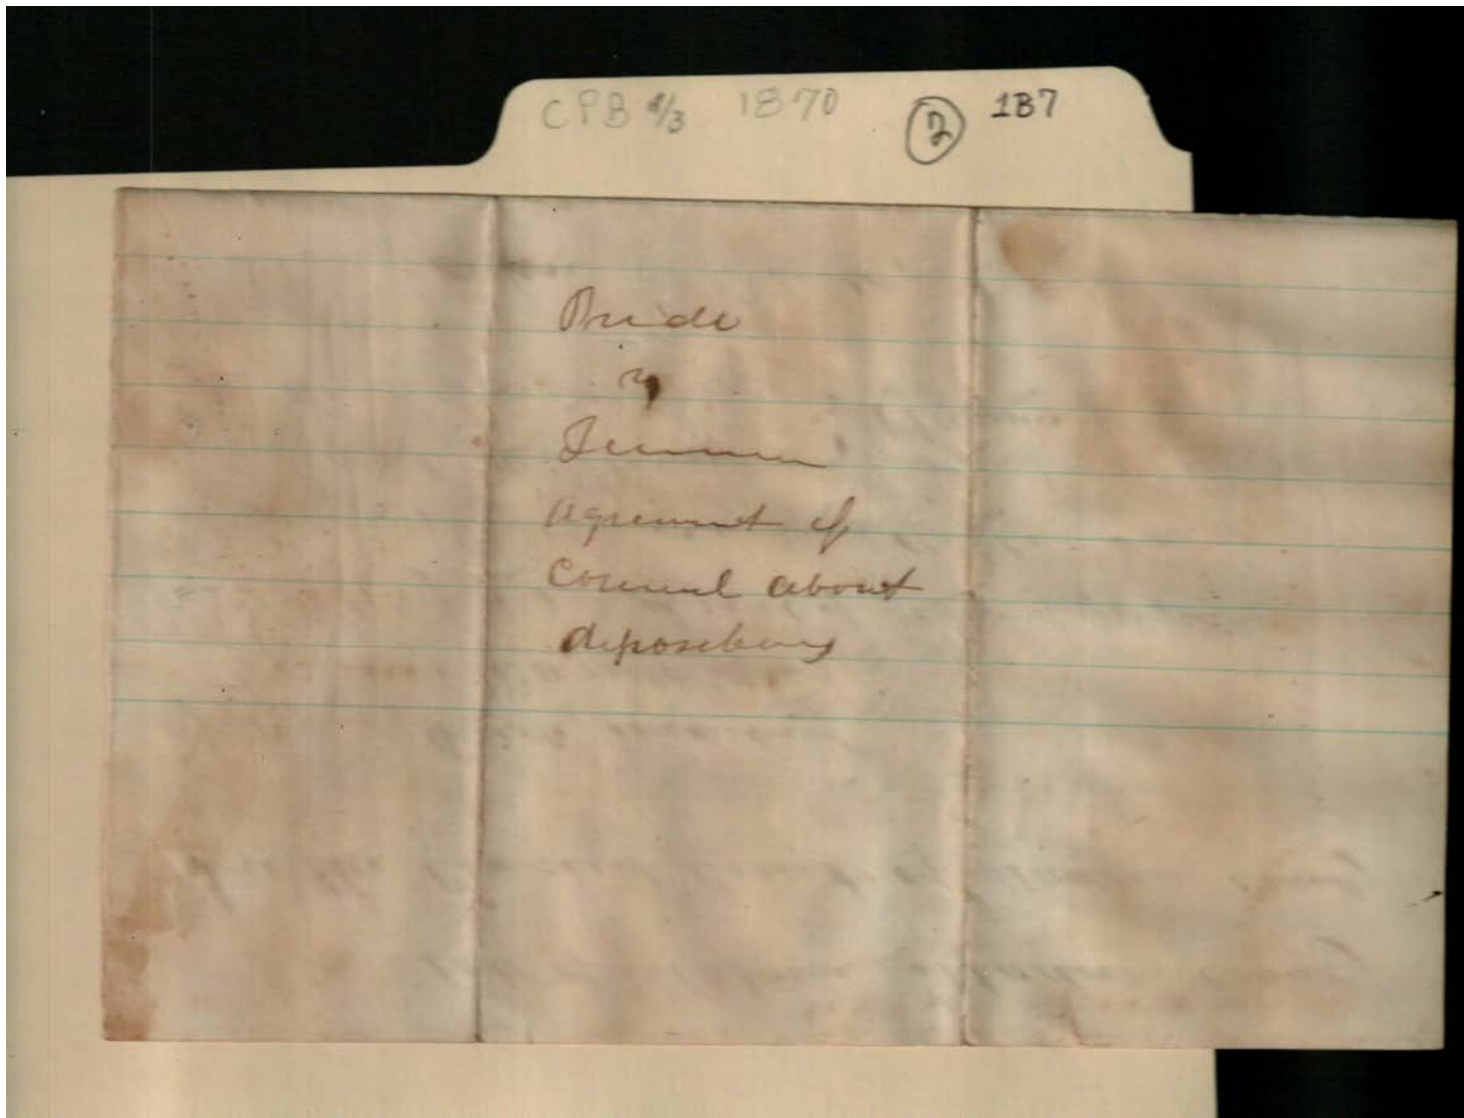 CPB 4/3 1870 2 1B7
Pride
vs
agreement of
Counsel about
depositions